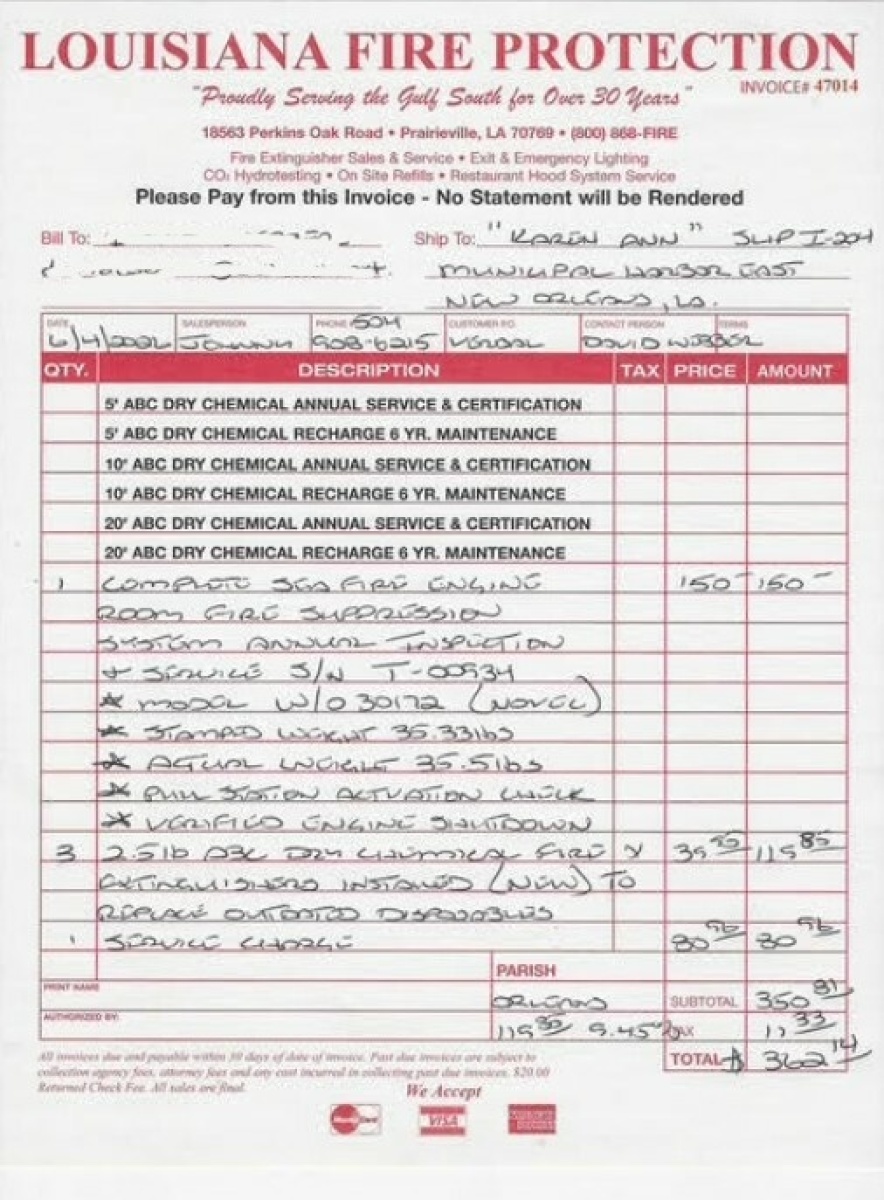 LOUISIANA FIRE PROTECTION
INVOICE# 47014
"Proudly Serving the Gulf South for Over 30 Years"
18563 Perkins Oak Road • Prairieville, LA 70769 • (800) 868-FIRE
Fire Extinguisher Sales & Service • Exit & Emergency Lighting
CO₂ Hydrotesting • On Site Refills • Restaurant Hood System Service
Please Pay from this Invoice - No Statement will be Rendered
Bill To:
Ship To: "KAREN ANN" SLIP I-204
MUNICIPAL HARBOR EAST
NEW ORLEANS, LA.
DATE SALESPERSON PHONE 504 CUSTOMER P.O. CONTACT PERSON TERMS
6/4/2026 JOHNNY 908-6215 VERBAL DAVID WEBBER
QTY. DESCRIPTION TAX PRICE AMOUNT
5# ABC DRY CHEMICAL ANNUAL SERVICE & CERTIFICATION
5# ABC DRY CHEMICAL RECHARGE 6 YR. MAINTENANCE
10# ABC DRY CHEMICAL ANNUAL SERVICE & CERTIFICATION
10# ABC DRY CHEMICAL RECHARGE 6 YR. MAINTENANCE
20# ABC DRY CHEMICAL ANNUAL SERVICE & CERTIFICATION
20# ABC DRY CHEMICAL RECHARGE 6 YR. MAINTENANCE
1 COMPLETE SEA FIRE ENGINE 150- 150-
ROOM FIRE SUPPRESSION
SYSTEM ANNUAL INSPECTION
+ SERVICE S/N T-00934
* MODEL W/O 30172 (NOVEC)
* STAMPED WEIGHT 35.33lbs
* ACTUAL WEIGHT 35.5lbs
* PULL STATION ACTUATION CHECK
* VERIFIED ENGINE SHUTDOWN
3 2.5lb ABC DRY CHEMICAL FIRE X 39 95 119 85
EXTINGUISHERS INSTALLED (NEW) TO
REPLACE OUTDATED DISPOSABLES
1 SERVICE CHARGE 80 96 80 96
PARISH
PRINT NAME
ORLEANS SUBTOTAL 350 81
AUTHORIZED BY:
119 85 9.45% TAX 11 33
TOTAL $ 362 14
All invoices due and payable within 30 days of date of invoice. Past due invoices are subject to
collection agency fees, attorney fees and any cost incurred in collecting past due invoices. $20.00
Returned Check Fee. All sales are final.
We Accept
MasterCard VISA